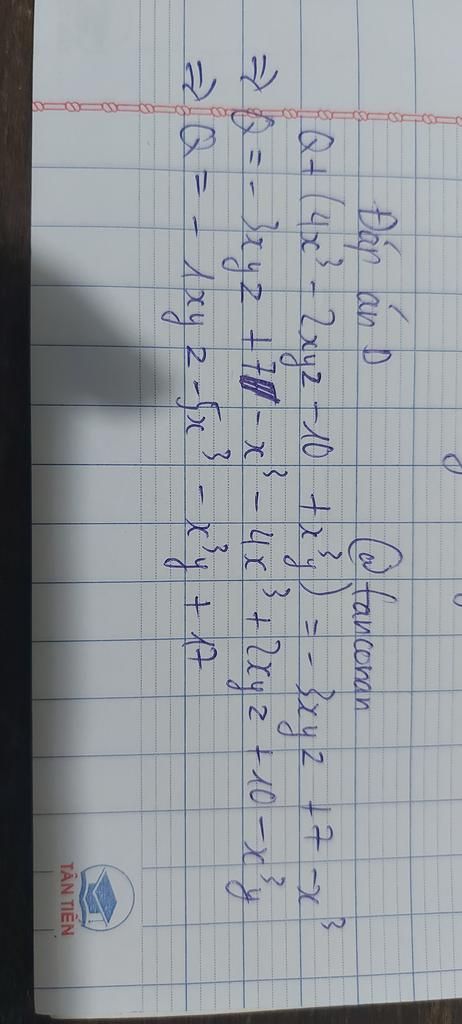 Đáp án D @fanconan
Q + (4x³ - 2xyz - 10 + x³y) = - 3xyz + 7 - x³
⇒ Q = - 3xyz + 7 - x³ - 4x³ + 2xyz + 10 - x³y
⇒ Q = - 1xyz - 5x³ - x³y + 17
TÂN TIẾN